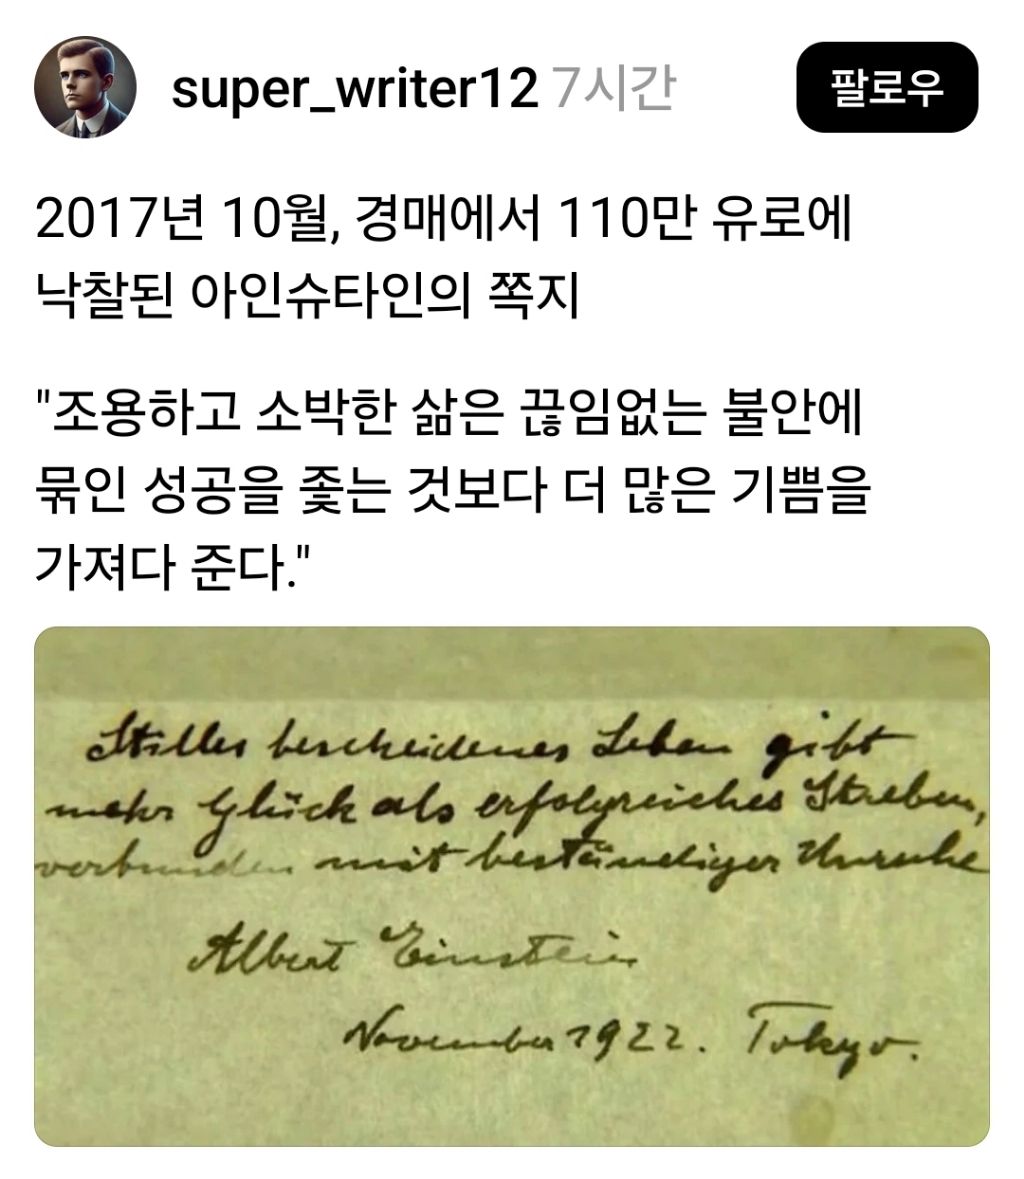 super_writer12 7시간
팔로우
2017년 10월, 경매에서 110만 유로에
낙찰된 아인슈타인의 쪽지
"조용하고 소박한 삶은 끊임없는 불안에
묶인 성공을 좇는 것보다 더 많은 기쁨을
가져다 준다."
Stilles bescheidenes Leben gibt
mehr Glück als erfolgreiches Streben,
verbunden mit beständiger Unruhe
Albert Einstein
November 1922. Tokyo.